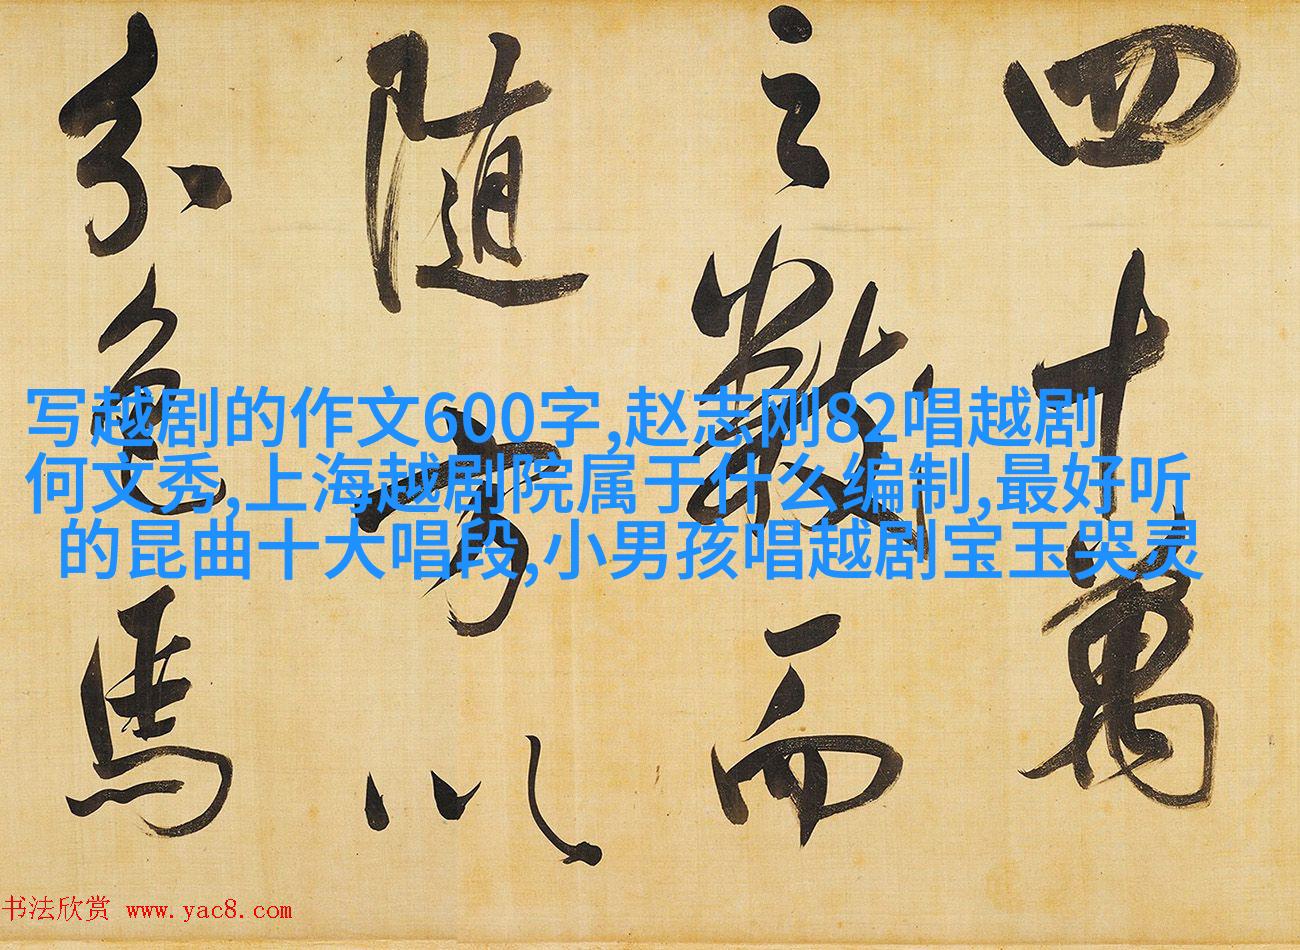 四十萬
之數而
随方以
分色馬
写越剧的作文600字,赵志刚82唱越剧
何文秀,上海越剧院属于什么编制,最好听
的昆曲十大唱段,小男孩唱越剧宝玉哭灵
书法欣赏 www.yac8.com